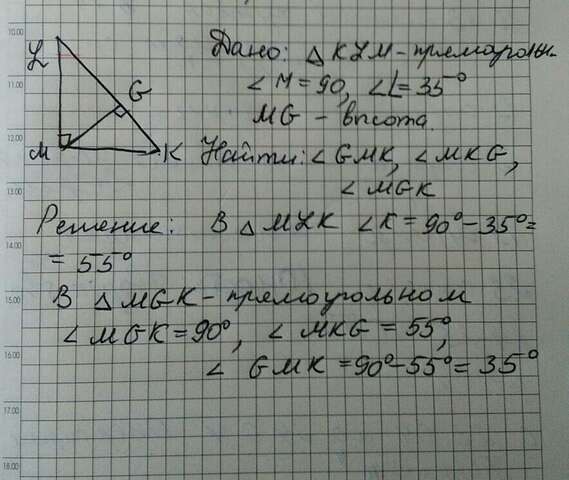 10.00
11.00
12.00
13.00
14.00
15.00
16.00
17.00
18.00
L
G
M
K
Дано: △ KLM - прямоугольн.
∠ M = 90, ∠L = 35°
MG - высота.
Найти: ∠ GMK, ∠ MKG,
∠ MGK
Решение: В △ MLK ∠K = 90° - 35° =
= 55°
В △ MGK - прямоугольном
∠ MGK = 90°, ∠ MKG = 55°,
∠ GMK = 90° - 55° = 35°